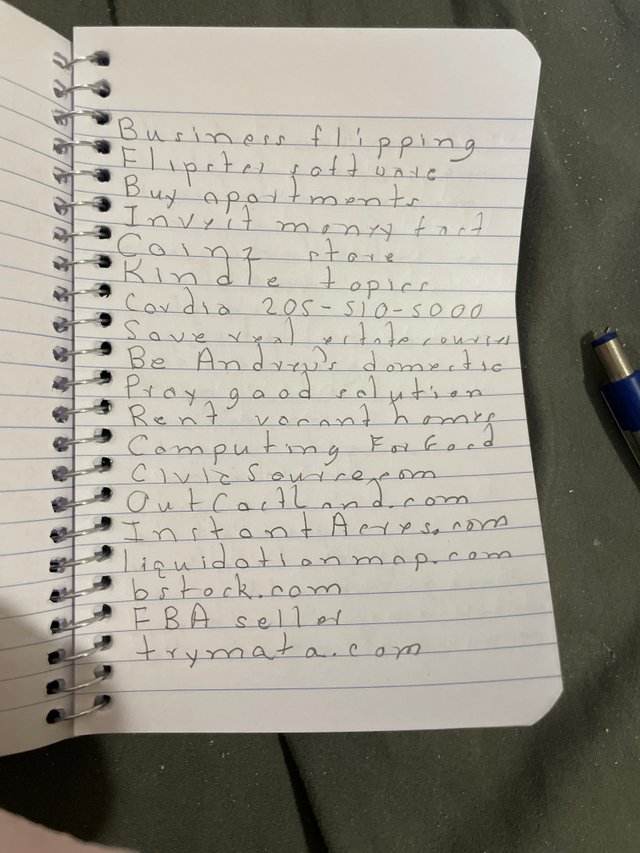 Business flipping
Flipster software
Buy apartments
Invest money fast
Coinz store
Kindle topics
Cardia 205-510-5000
Save real estate courses
Be Andrew's domestic
Pray good solution
Rent vacant homes
Computing For Good
CivicSource.com
OutCastLand.com
InstantAcres.com
liquidationmap.com
bstock.com
FBA seller
trymata.com